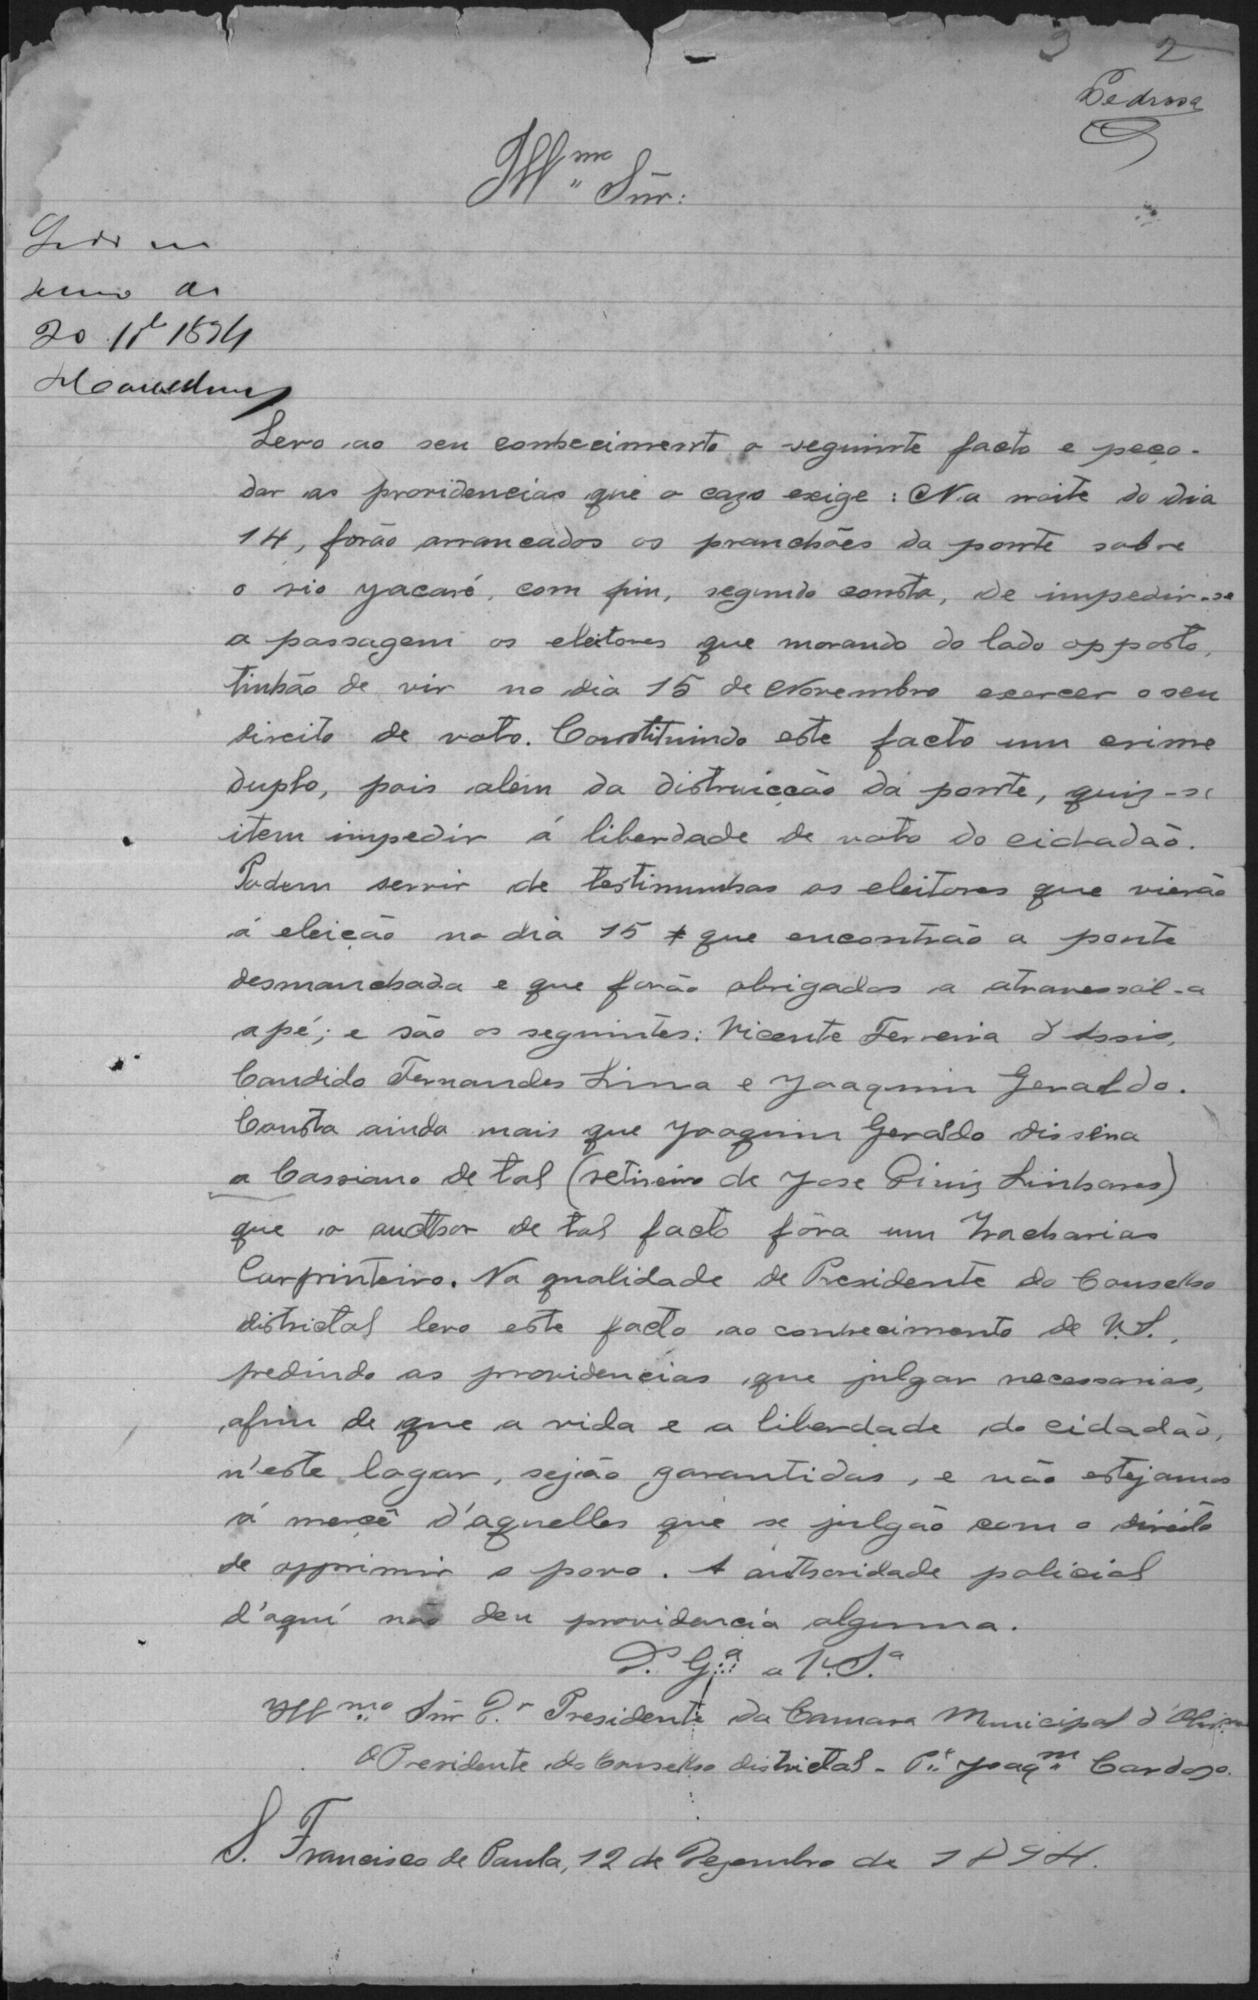 3 2
Pedrosa
Illmo Snr:
20 1894
Levo ao seu conhecimento o seguinte facto e peço-
dar as providencias que o cazo exige: Na noite do dia
14, forão arrancados os pranchões da ponte sobre
o rio Yacaré, com fim, segundo consta, de impedir-se
a passagem os eleitores que morando do lado opposto,
tinhão de vir no dia 15 de Novembro exercer o seu
direito de voto. Constituindo este facto um crime
duplo, pois alem da distruicção da ponte, quiz-se
item impedir á liberdade de voto do cidadão.
Podem servir de testimunhas os eleitores que vierão
á eleição no dia 15 que encontrão a ponte
desmanchada e que forão obrigados a atravessal-a
a pé; e são os seguintes: Vicente Ferreira d'Assis,
Candido Fernandes Lima e Yoaquim Geraldo.
Consta ainda mais que Yoaquim Geraldo dissera
a Cassiano de tal (retireiro de Yose Diniz Linhares)
que o author de tal facto fôra um Zacharias
Carprinteiro. Na qualidade de Presidente do Conselho
districtal levo este facto ao conhecimento de V.S.,
pedindo as providencias que julgar necessarias,
afim de que a vida e a liberdade do cidadão,
n'este lagar, sejão garantidas, e não estejamos
á mercê d'aquelles que se julgão com o direito
de opprimir o povo. A authoridade policial
d'aquí não deu providencia alguma.
D. G.a a V.S.a
Illmo Snr D.r Presidente da Camara Municipal d'
O Presidente do Conselho districtal - P.e Yoaqm Cardozo.
S. Francisco de Paula, 12 de Dezembro de 1894.